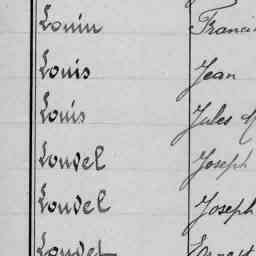 Louin Franci
Louis Jean
Louis Jules M
Louvel Joseph
Louvel Joseph
Louvet Ernest